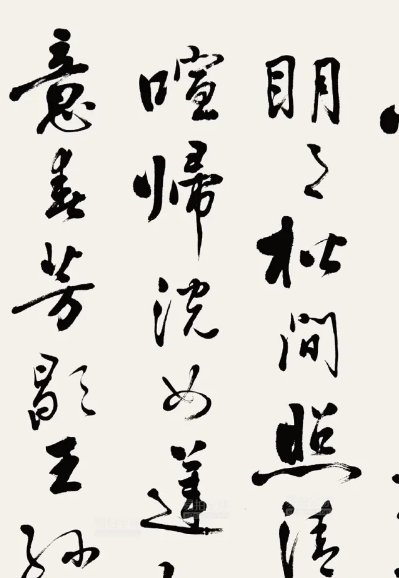 明々松間照清
喧帰浣女蓮
意春芳歇王孫